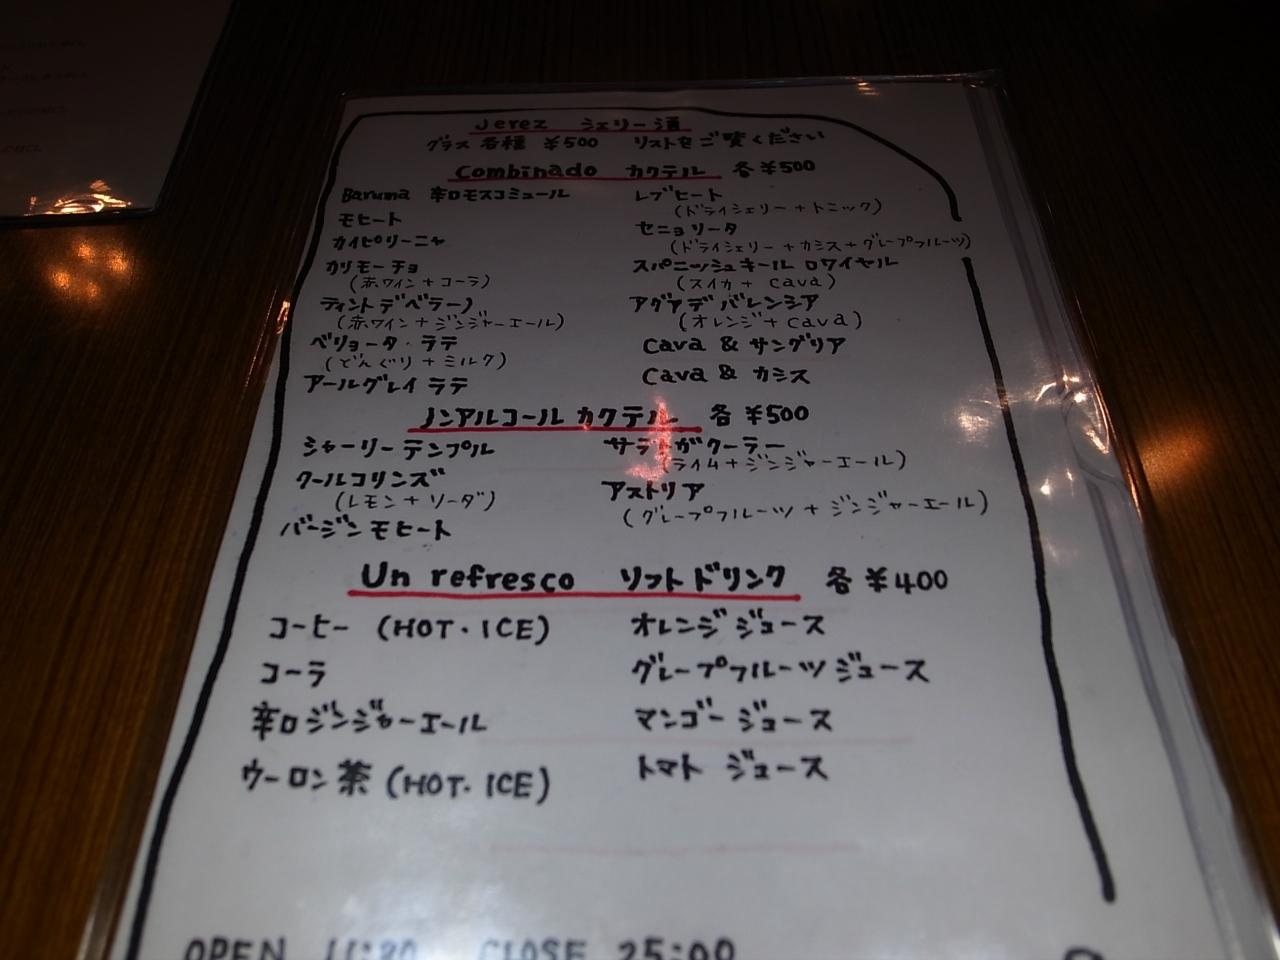 Jerez シェリー酒
グラス 各種 ¥500 リストをご覧ください
Combinado カクテル 各 ¥500
Baruma 辛口モスコミュール
モヒート
カイピリーニャ
カリモーチョ
(赤ワイン + コーラ)
ティントデベラーノ
(赤ワイン + ジンジャーエール)
ベリョータ・ラテ
(どんぐり + ミルク)
アールグレイ ラテ
レブヒート
(ドライシェリー + トニック)
セニョリータ
(ドライシェリー + カシス + グレープフルーツ)
スパニッシュキール ロワイヤル
(スイカ + cava)
アグアデ バレンシア
(オレンジ + cava)
Cava & サングリア
Cava & カシス
ノンアルコール カクテル 各 ¥500
シャーリーテンプル
クールコリンズ
(レモン + ソーダ)
バージンモヒート
サラトガクーラー
(ライム + ジンジャーエール)
アストリア
(グレープフルーツ + ジンジャーエール)
Un refresco ソフトドリンク 各 ¥400
コーヒー (HOT・ICE)
コーラ
辛口ジンジャーエール
ウーロン茶 (HOT・ICE)
オレンジジュース
グレープフルーツジュース
マンゴージュース
トマト ジュース
OPEN CLOSE 25:00